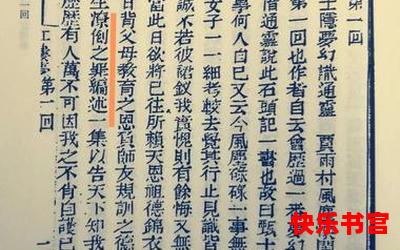 第一回
士隱夢幻識通靈 賈雨村風
一回也作者自云曾歷過一番
借通靈說此石頭記一書也故曰甄士
事何人自己又云今風塵碌碌一事無
女子一一細考較去覺其行止見識皆
誠不若彼裙釵我實愧則有餘悔又無
當此日欲將已往所賴天恩祖德錦衣
日背父母教育之恩負師友規訓之德
生潦倒之罪編述一集以告天下知我
歷歷有人萬不可因我之不肖自護己
紅樓夢 第一回 一
快乐书宫